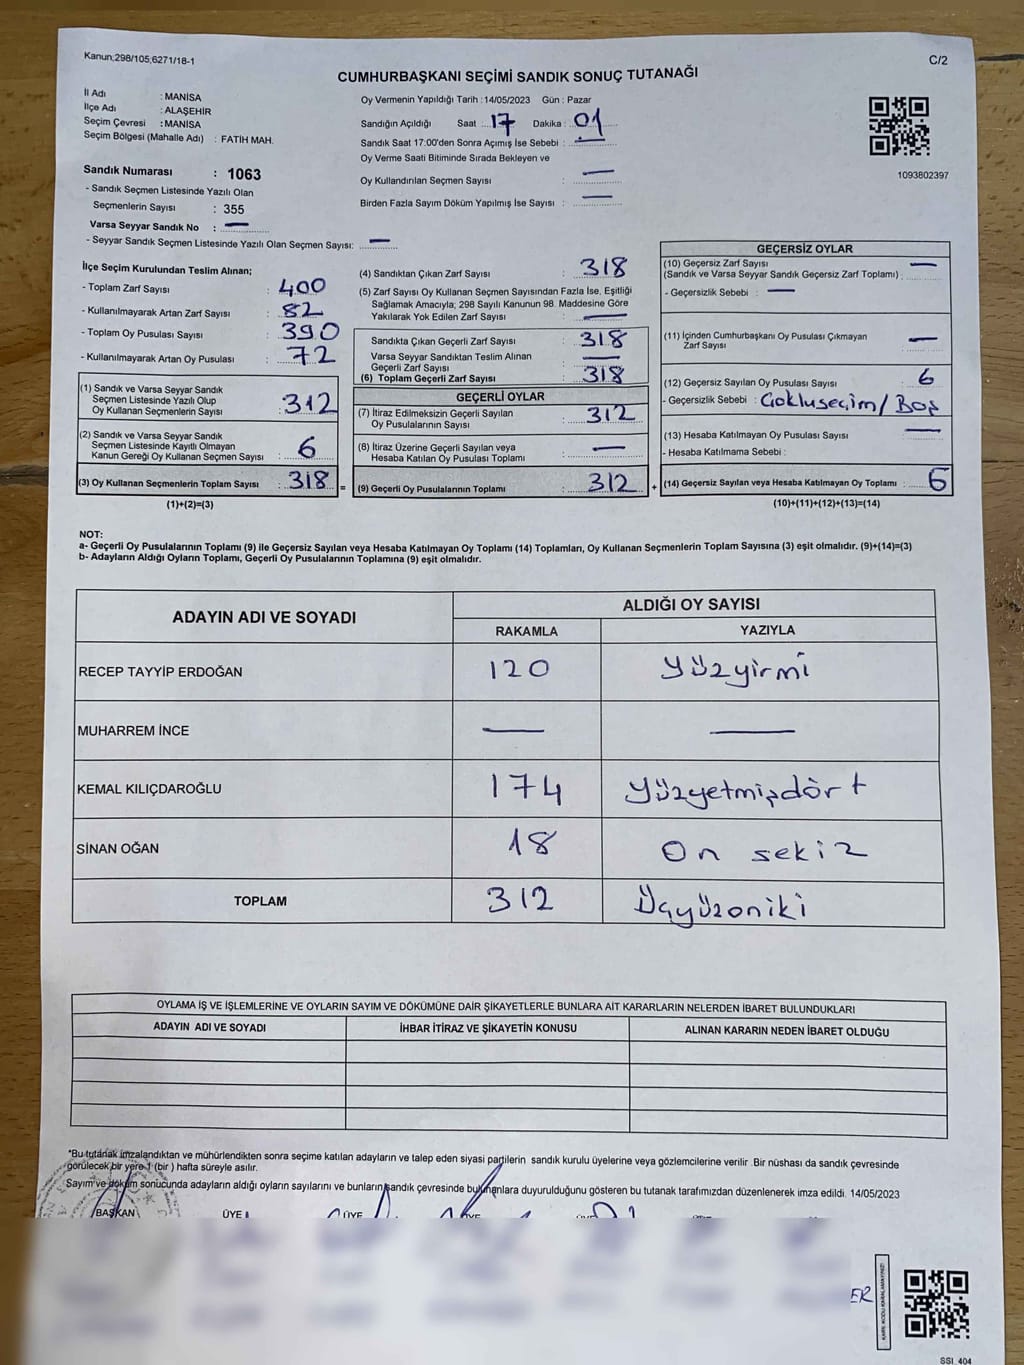 Kanun;298/105;6271/18-1
C/2
CUMHURBAŞKANI SEÇİMİ SANDIK SONUÇ TUTANAĞI
İl Adı : MANİSA
İlçe Adı : ALAŞEHİR
Seçim Çevresi : MANİSA
Seçim Bölgesi (Mahalle Adı) : FATİH MAH.
Sandık Numarası : 1063
- Sandık Seçmen Listesinde Yazılı Olan
Seçmenlerin Sayısı : 355
Varsa Seyyar Sandık No : —
- Seyyar Sandık Seçmen Listesinde Yazılı Olan Seçmen Sayısı: —
Oy Vermenin Yapıldığı Tarih : 14/05/2023 Gün : Pazar
Sandığın Açıldığı Saat : 17 Dakika : 01
Sandık Saat 17:00'den Sonra Açımış İse Sebebi : —
Oy Verme Saati Bitiminde Sırada Bekleyen ve
Oy Kullandırılan Seçmen Sayısı : —
Birden Fazla Sayım Döküm Yapılmış İse Sayısı : —
1093802397
İlçe Seçim Kurulundan Teslim Alınan;
- Toplam Zarf Sayısı : 400
- Kullanılmayarak Artan Zarf Sayısı : 82
- Toplam Oy Pusulası Sayısı : 390
- Kullanılmayarak Artan Oy Pusulası : 72
(1) Sandık ve Varsa Seyyar Sandık
Seçmen Listesinde Yazılı Olup
Oy Kullanan Seçmenlerin Sayısı : 312
(2) Sandık ve Varsa Seyyar Sandık
Seçmen Listesinde Kayıtlı Olmayan
Kanun Gereği Oy Kullanan Seçmen Sayısı : 6
(3) Oy Kullanan Seçmenlerin Toplam Sayısı : 318 =
(1)+(2)=(3)
(4) Sandıktan Çıkan Zarf Sayısı : 318
(5) Zarf Sayısı Oy Kullanan Seçmen Sayısından Fazla İse, Eşitliği
Sağlamak Amacıyla; 298 Sayılı Kanunun 98. Maddesine Göre
Yakılarak Yok Edilen Zarf Sayısı : —
Sandıkta Çıkan Geçerli Zarf Sayısı : 318
Varsa Seyyar Sandıktan Teslim Alınan
Geçerli Zarf Sayısı : —
(6) Toplam Geçerli Zarf Sayısı : 318
GEÇERLİ OYLAR
(7) İtiraz Edilmeksizin Geçerli Sayılan
Oy Pusulalarının Sayısı : 312
(8) İtiraz Üzerine Geçerli Sayılan veya
Hesaba Katılan Oy Pusulası Toplamı : —
(9) Geçerli Oy Pusulalarının Toplamı : 312 +
GEÇERSİZ OYLAR
(10) Geçersiz Zarf Sayısı —
(Sandık ve Varsa Seyyar Sandık Geçersiz Zarf Toplamı) :
- Geçersizlik Sebebi : —
(11) İçinden Cumhurbaşkanı Oy Pusulası Çıkmayan
Zarf Sayısı —
(12) Geçersiz Sayılan Oy Pusulası Sayısı : 6
- Geçersizlik Sebebi : Çokluseçim/Boş
(13) Hesaba Katılmayan Oy Pusulası Sayısı : —
- Hesaba Katılmama Sebebi :
(14) Geçersiz Sayılan veya Hesaba Katılmayan Oy Toplamı : 6
(10)+(11)+(12)+(13)=(14)
NOT:
a- Geçerli Oy Pusulalarının Toplamı (9) ile Geçersiz Sayılan veya Hesaba Katılmayan Oy Toplamı (14) Toplamları, Oy Kullanan Seçmenlerin Toplam Sayısına (3) eşit olmalıdır. (9)+(14)=(3)
b- Adayların Aldığı Oyların Toplamı, Geçerli Oy Pusulalarının Toplamına (9) eşit olmalıdır.
ADAYIN ADI VE SOYADI ALDIĞI OY SAYISI
RAKAMLA YAZIYLA
RECEP TAYYİP ERDOĞAN 120 Yüzyirmi
MUHARREM İNCE — —
KEMAL KILIÇDAROĞLU 174 Yüzyetmişdört
SİNAN OĞAN 18 On sekiz
TOPLAM 312 Üçyüzoniki
OYLAMA İŞ VE İŞLEMLERİNE VE OYLARIN SAYIM VE DÖKÜMÜNE DAİR ŞİKAYETLERLE BUNLARA AİT KARARLARIN NELERDEN İBARET BULUNDUKLARI
ADAYIN ADI VE SOYADI İHBAR İTİRAZ VE ŞİKAYETİN KONUSU ALINAN KARARIN NEDEN İBARET OLDUĞU
*Bu tutanak imzalandıktan ve mühürlendikten sonra seçime katılan adayların ve talep eden siyasi partilerin sandık kurulu üyelerine veya gözlemcilerine verilir .Bir nüshası da sandık çevresinde
görülecek bir yere 1 (bir ) hafta süreyle asılır.
Sayım ve döküm sonucunda adayların aldığı oyların sayılarını ve bunların sandık çevresinde bulunanlara duyurulduğunu gösteren bu tutanak tarafımızdan düzenlenerek imza edildi. 14/05/2023
BAŞKAN ÜYE ÜYE ÜYE
ER
SSI 404